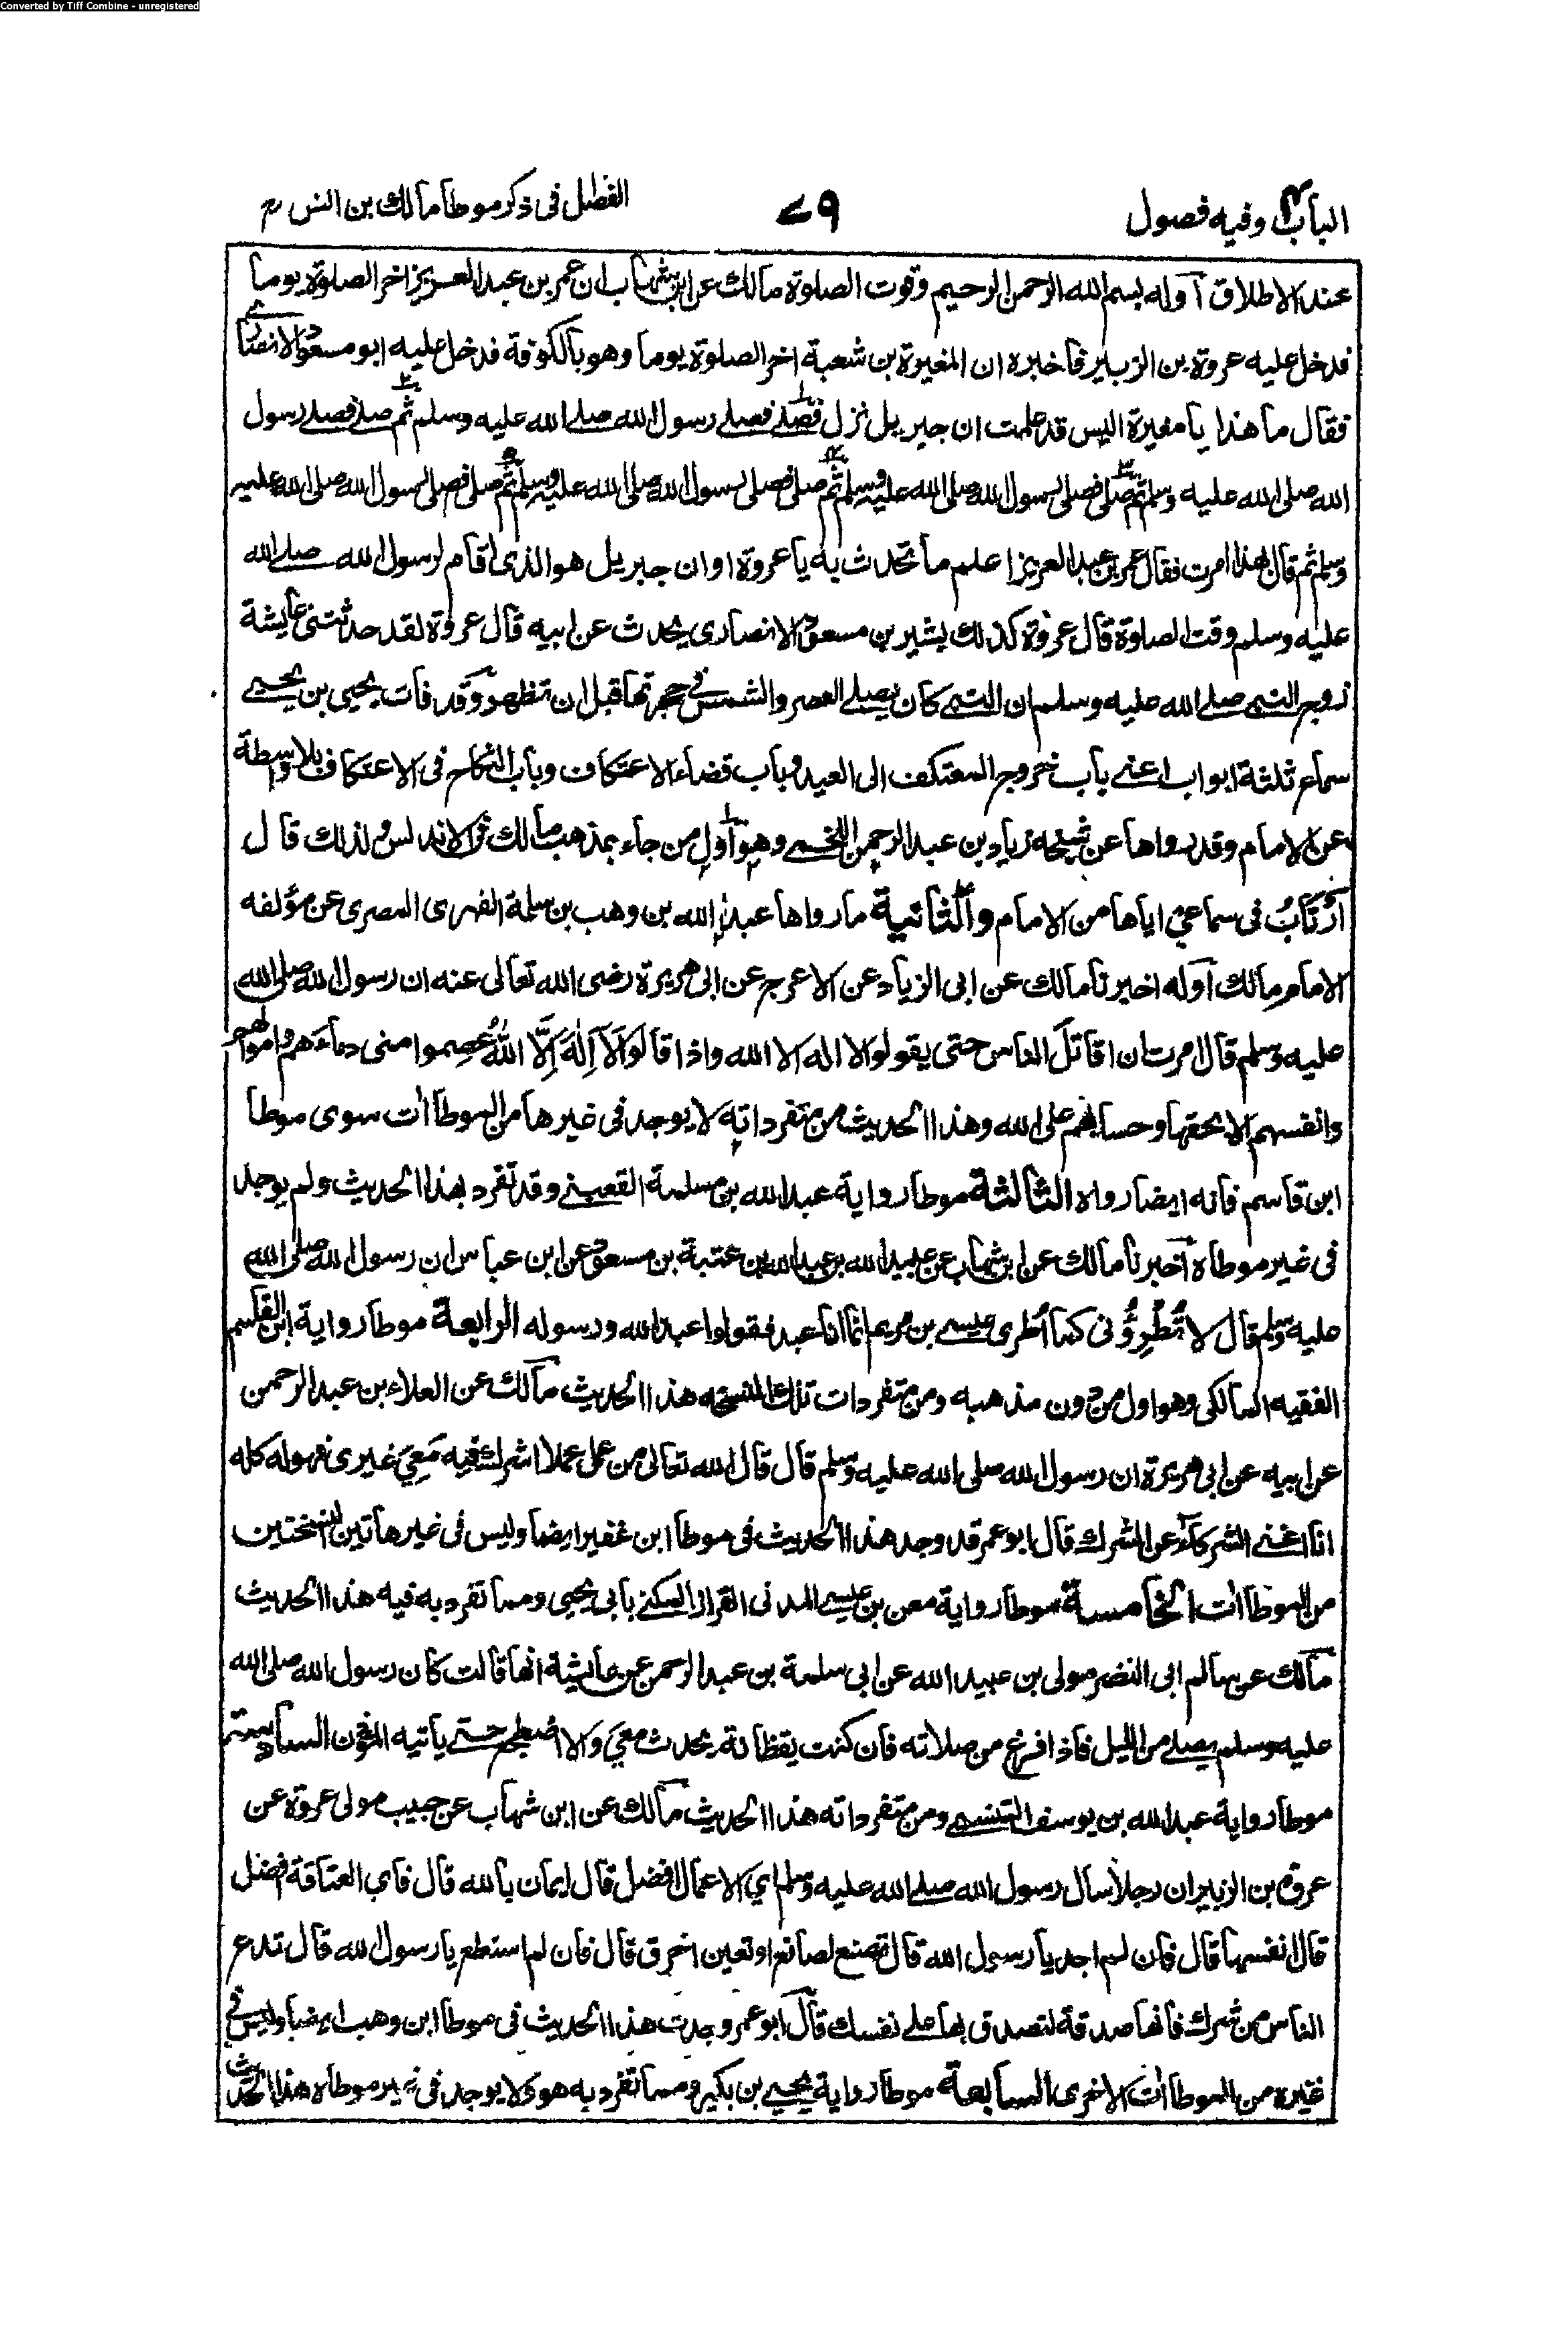 Converted by Tiff Combine - unregistered
الباب٤ وفيه فصول
٧٩
الفصل فى ذكر موطا مالك بن انس رح
عند الاطلاق اوله بسم الله الرحمن الرحيم وقوت الصلوة مالك عن ابن شهاب ان عمر بن عبد العزيز اخر الصلوة يوما
فدخل عليه عروة بن الزبير فاخبره ان المغيرة بن شعبة اخر الصلوة يوما وهو بالكوفة فدخل عليه ابو مسعود الانصارى
فقال ما هذا يا مغيرة اليس قد علمت ان جبريل نزل فصلى فصلى رسول الله صلى الله عليه وسلم ثم صلى فصلى رسول
الله صلى الله عليه وسلم ثم صلى فصلى رسول الله صلى الله عليه وسلم ثم صلى فصلى رسول الله صلى الله عليه وسلم ثم صلى فصلى رسول الله صلى الله عليه
وسلم ثم قال بهذا امرت فقال عمر بن عبد العزيز اعلم ما تحدث به يا عروة اوان جبريل هو الذى اقام لرسول الله صلى الله
عليه وسلم وقت الصلوة قال عروة كذلك بشير بن مسعود الانصارى يحدث عن ابيه قال عروة لقد حدثتنى عايشة
زوج النبى صلى الله عليه وسلم ان النبى كان يصلى العصر والشمس فى حجرتها قبل ان تظهر وقد فات يحيى بن يحيى
سماع ثلثة ابواب اعنى باب خروج المعتكف الى العيد وباب قضاء الاعتكاف وباب النكاح فى الاعتكاف بلا واسطة
عن الامام وقد رواها عن شيخه زياد بن عبد الرحمن اللخمى وهو اول من جاء بمذهب مالك فى الاندلس ولذلك قال
اَرْتَابُ فى سماعى اياها من الامام والثانية ما رواها عبد الله بن وهب بن سلمة الفهرى المصرى عن مؤلفه
الامام مالك اوله اخبرنا مالك عن ابى الزياد عن الاعرج عن ابى هريرة رضى الله تعالى عنه ان رسول الله صلى الله
عليه وسلم قال امرت ان اقاتل الناس حتى يقولوا لا اله الا الله واذا قالوا لَا اِلٰهَ اِلَّا اللّٰهُ عصموا منى دماءهم واموالهم
وانفسهم الا بحقها وحسابهم على الله وهذا الحديث من متفرداته لا يوجد فى غيرها من الموطاات سوى موطا
ابن قاسم فانه ايضا رواه الثالثة موطا رواية عبد الله بن مسلمة القعنبى وقد تفرد بهذا الحديث ولم يوجد
فى غير موطاه اخبرنا مالك عن ابن شهاب عن عبيد الله بن عبد الله بن عتبة بن مسعود عن ابن عباس ان رسول الله صلى الله
عليه وسلم قال لا تُطْرُوْنى كما اُطرى عيسى بن مريم انما انا عبد فقولوا عبد الله ورسوله الرابعة موطا رواية ابن القاسم
الفقيه المالكى وهو اول من دون مذهبه ومن متفردات تلك النسخه هذا الحديث مالك عن العلاء بن عبد الرحمن
عن ابيه عن ابى هريرة ان رسول الله صلى الله عليه وسلم قال قال الله تعالى من عمل عملا اشرك فيه مَعِيَ غيرى فهو له كله
انا اغنى الشركاء عن الشرك قال ابو عمر قد وجد هذا الحديث فى موطا ابن غفير ايضا وليس فى غير هاتين النسختين
من الموطاات الخامسة موطا رواية معن بن عيسى المدنى القزاز المكنى بابى يحيى ومما تفرد به فيه هذا الحديث
مالك عن سالم ابى النضر مولى بن عبيد الله عن ابى سلمة بن عبد الرحمن عن عايشة انها قالت كان رسول الله صلى الله
عليه وسلم يصلى من الليل فاذا فرغ من صلاته فان كنت يقظانة يحدث معي والا اضطجع حتى ياتيه المؤذن السادسة
موطا رواية عبد الله بن يوسف التنيسى ومن متفرداته هذا الحديث مالك عن ابن شهاب عن حبيب مولى عروة عن
عروة بن الزبير ان رجلا سال رسول الله صلى الله عليه وسلم اي الاعمال افضل قال ايمان بالله قال فاى العتاقة افضل
قال انفسها قال فان لم اجد يا رسول الله قال تصنع لصانع او تعين اخرق قال فان لم استطع يا رسول الله قال تدع
الناس من شرك فانها صدقة لتصدق بها على نفسك قال ابو عمر وجدت هذا الحديث فى موطا ابن وهب ايضا وليس فى
غيره من الموطاات الاخرى السابعة موطا رواية يحيى بن بكير ومما تفرد به هو ولا يوجد فى غير موطاه هذا الحديث